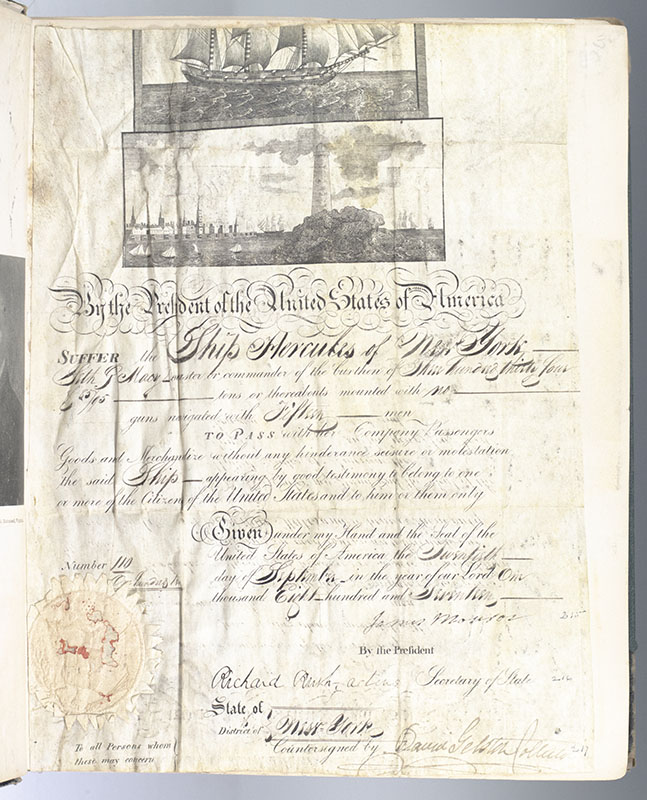 By the President of the United States of America
SUFFER the Ship Hercules of New York
Seth G Macy master or commander of the burthen of Three hundred thirty four
/95 tons or thereabouts mounted with no
guns navigated with Fifteen men
TO PASS with her Company Passengers
Goods and Merchandize without any hinderance seisure or molestation
the said Ship appearing by good testimony to belong to one
or more of the Citizens of the United States and to him or them only
Given under my Hand and the Seal of the
United States of America the Twentieth
day of September in the year of our Lord One
thousand Eight hundred and Seventeen
Number 110
James Monroe 215
By the President
Richard Rush acting Secretary of State 216
State of
District of New York
Countersigned by David Gelston Collector 217
To all Persons whom
these may concern